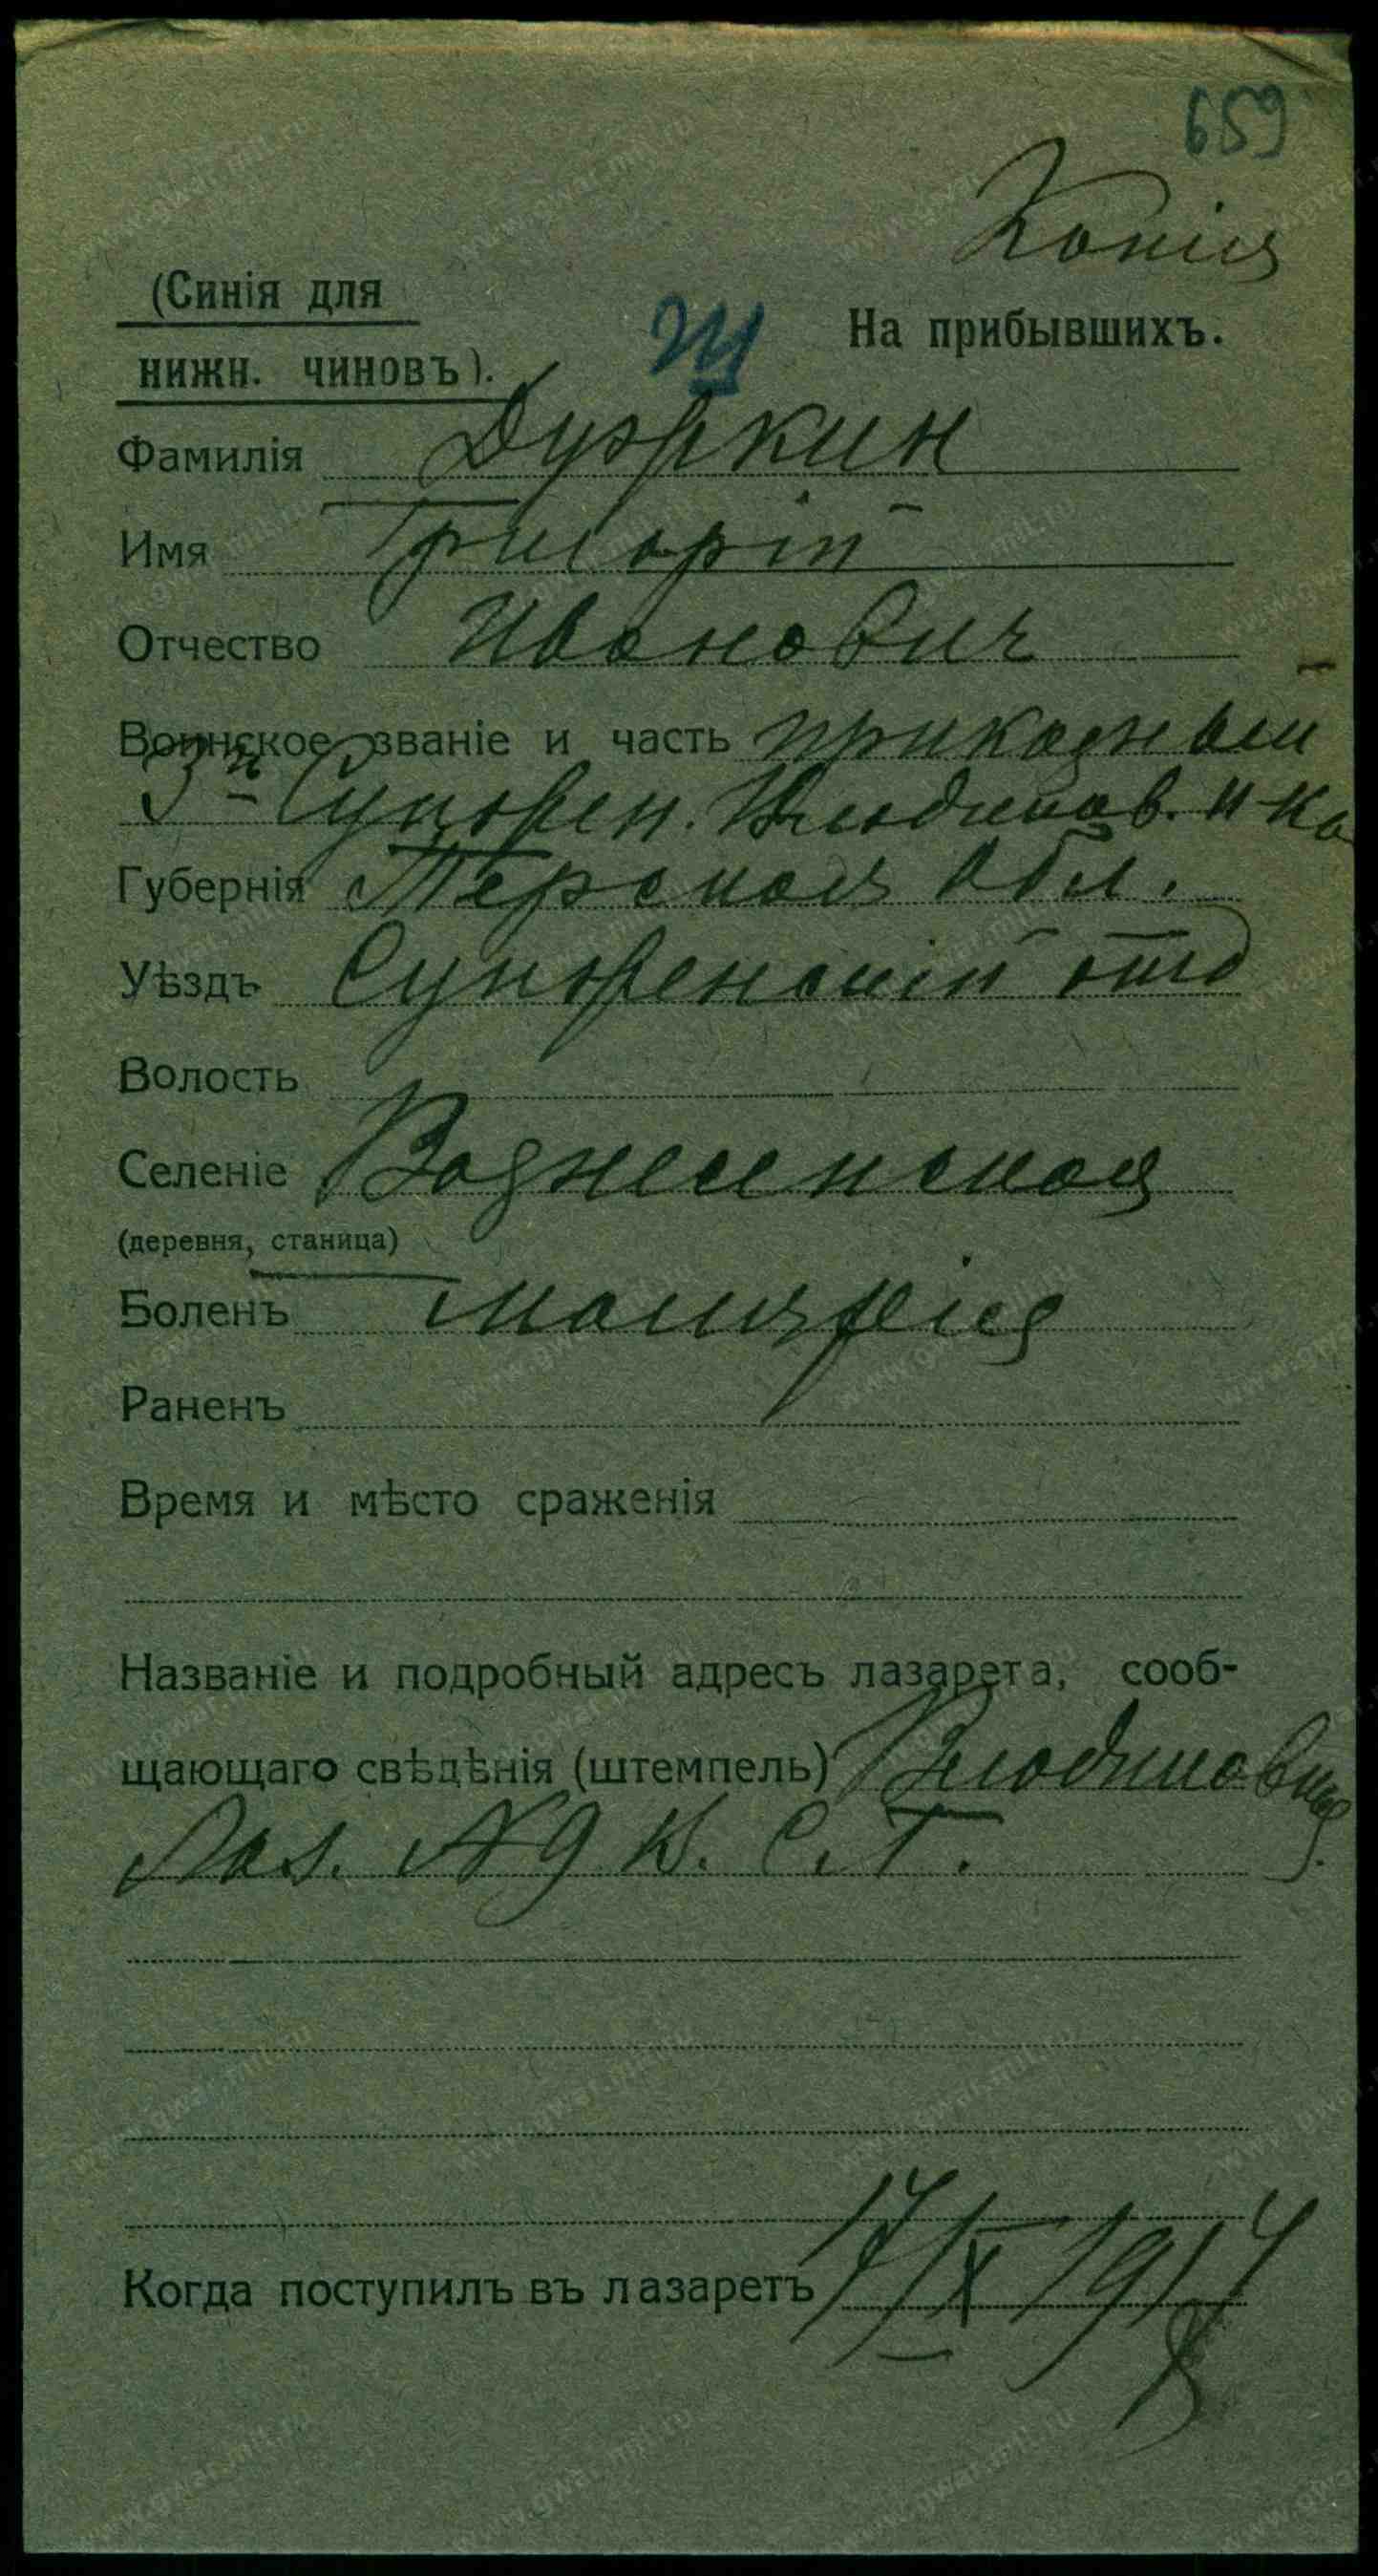 659
Копія
(Синія для
нижн. чиновъ).
На прибывшихъ.
Фамилія
Имя Григорій
Отчество Иванович
Воинское званіе и часть приказный
3й Сунжен. Владикав. п-ка
Губернія Терская обл.
Уѣздъ Сунженскій отд
Волость
Селеніе Вознесенская
(деревня, станица)
Боленъ малярія
Раненъ
Время и мѣсто сраженія
Названіе и подробный адресъ лазарета, сооб-
щающаго свѣдѣнія (штемпель)
Лаз. № 9 В. С. Г.
Когда поступилъ въ лазаретъ 17/IX 1914